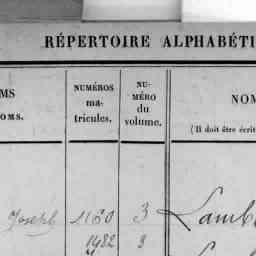 RÉPERTOIRE ALPHABÉTI
MS
OMS.
NUMÉROS
ma-
tricules.
NU-
MÉRO
du
volume.
NOM
(Il doit être écrit
Joseph 1160 3 Lamb
1482 3